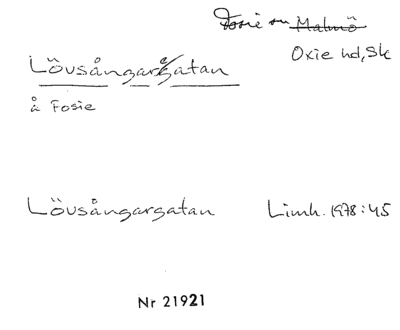 Fosie sn Malmö
Oxie hd, Sk
Lövsångaregatan
å Fosie
Lövsångargatan Limh. 1978:45
Nr 21921